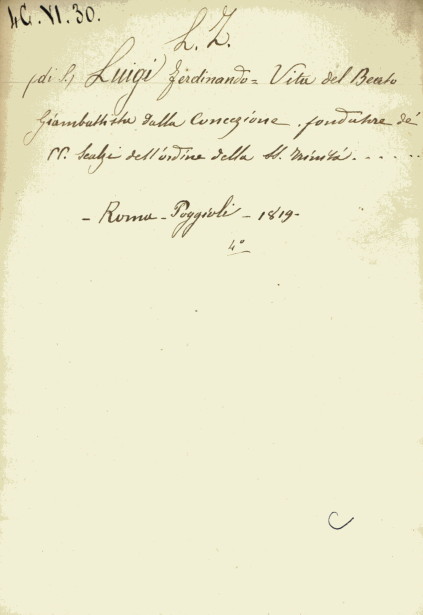 4G. VI. 30.
L. Z.
(di S) Luigi Ferdinando = Vita del Beato
Giambattista dalla Concezione. fondatore de'
PP. Scalzi dell'ordine della SS. Trinità. . . . . .
- Roma - Poggioli - 1819 -
4°
C